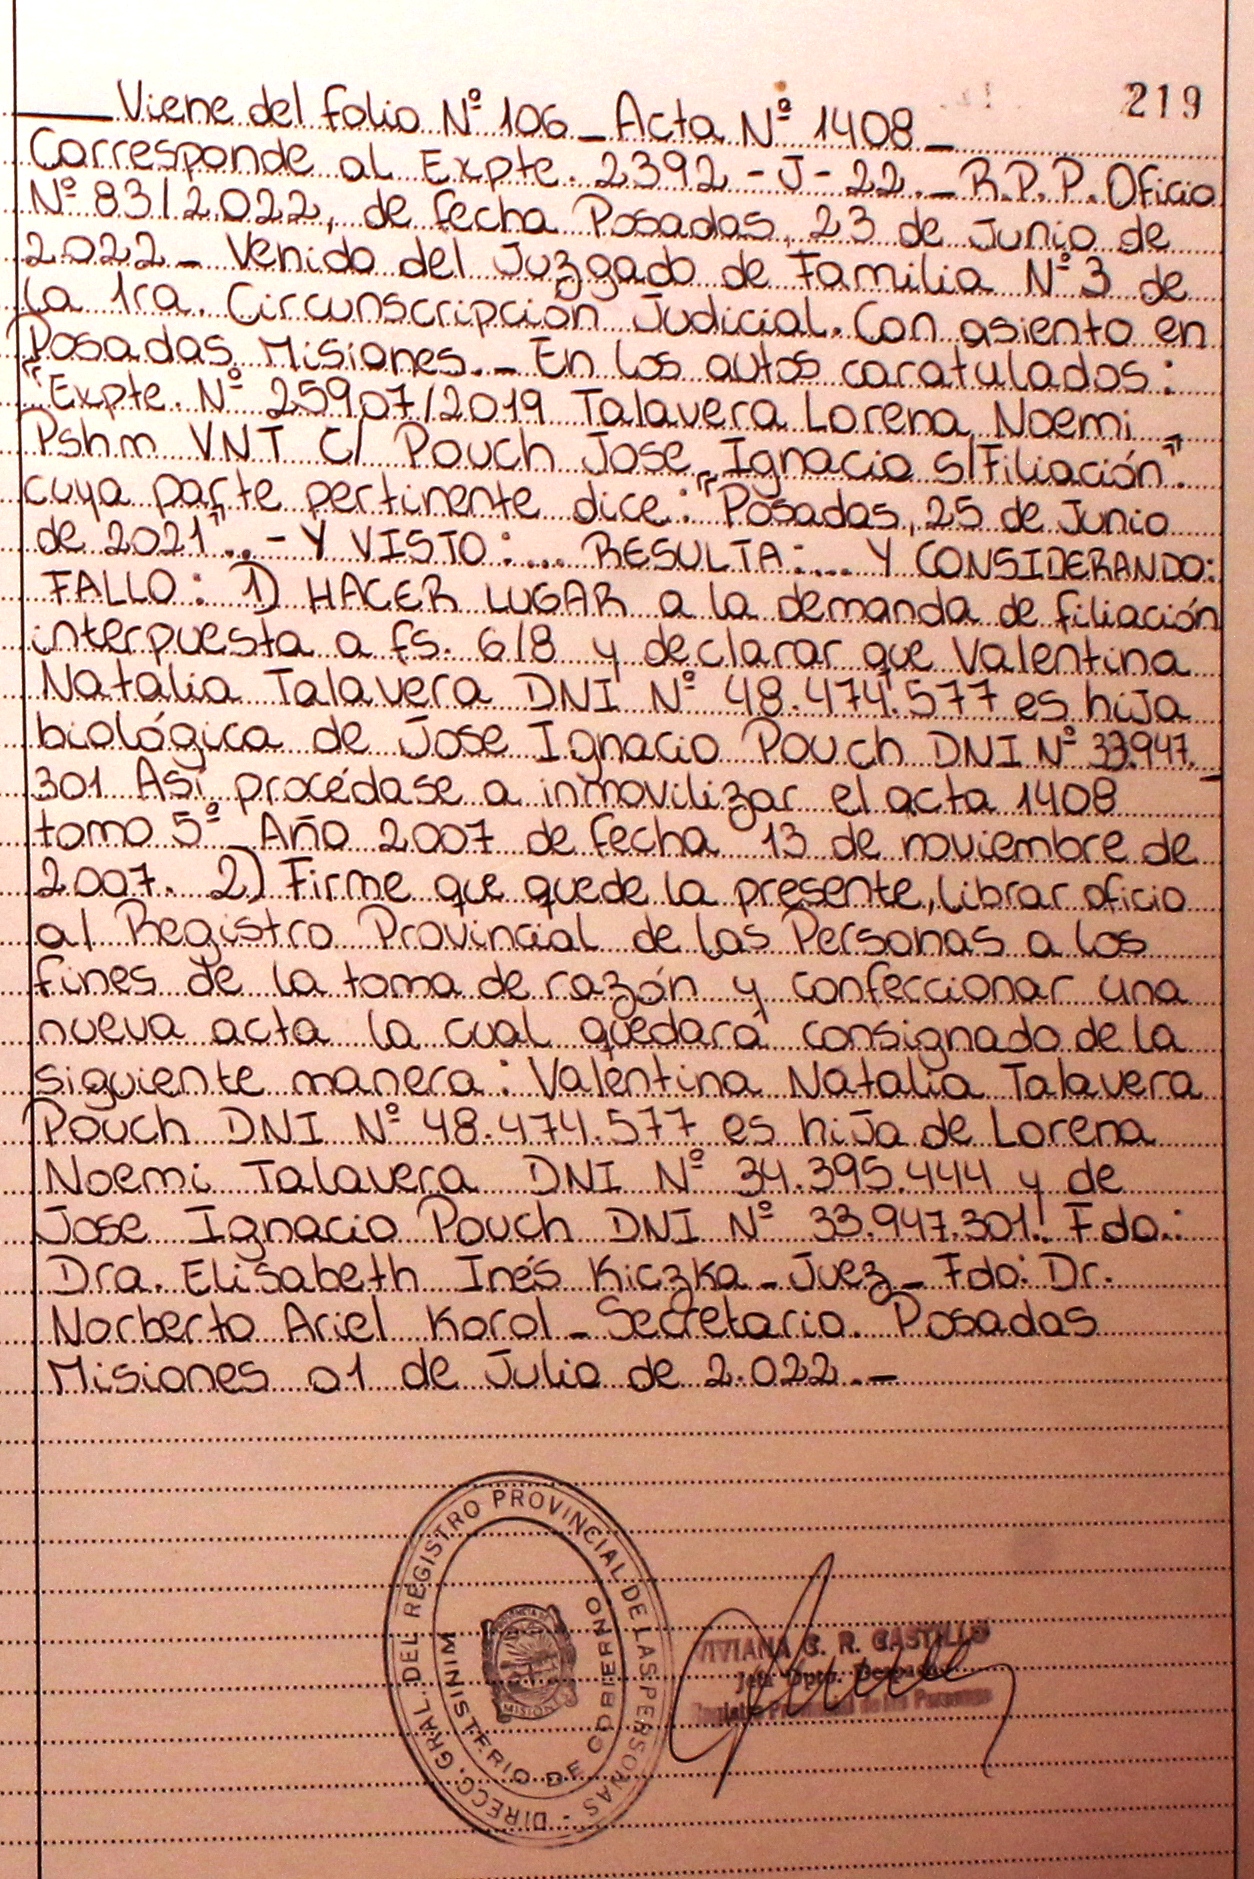 219
Viene del folio Nº 106 _ Acta Nº 1408 _
Corresponde al Expte. 2392 - J - 22. _ R.P.P. Oficio
Nº 83/2.022, de fecha Posadas, 23 de Junio de
2.022 _ Venido del Juzgado de Familia Nº 3 de
la 1ra. Circunscripción Judicial. Con asiento en
Posadas Misiones. _ En los autos caratulados:
"Expte. Nº 25907/2019 Talavera Lorena Noemi
Pshm VNT C/ Pouch Jose Ignacio s/Filiación".
cuya parte pertinente dice: "Posadas, 25 de Junio
de 2021".. - Y VISTO:... RESULTA:... Y CONSIDERANDO:
FALLO: 1) HACER LUGAR a la demanda de filiación
interpuesta a fs. 6/8 y declarar que Valentina
Natalia Talavera DNI Nº 48.474.577 es hija
biológica de Jose Ignacio Pouch DNI Nº 33.947._
301 Así procédase a inmovilizar el acta 1408
tomo 5º Año 2007 de fecha 13 de noviembre de
2.007. 2) Firme que quede la presente, librar oficio
al Registro Provincial de las Personas a los
fines de la toma de razón y confeccionar una
nueva acta la cual quedará consignado de la
siguiente manera: Valentina Natalia Talavera
Pouch DNI Nº 48.474.577 es hija de Lorena
Noemi Talavera DNI Nº 34.395.444 y de
Jose Ignacio Pouch DNI Nº 33.947.301". Fdo.:
Dra. Elisabeth Inés Kiczka _ Juez _ Fdo: Dr.
Norberto Ariel Korol _ Secretario. Posadas
Misiones 01 de Julio de 2.022. _
DIRECC. GRAL. DEL REGISTRO PROVINCIAL DE LAS PERSONAS -
MINISTERIO DE GOBIERNO
MISIONES
VIVIANA G. R. CASTILLO
Jefa Dpto. Despacho
Registro Provincial de las Personas